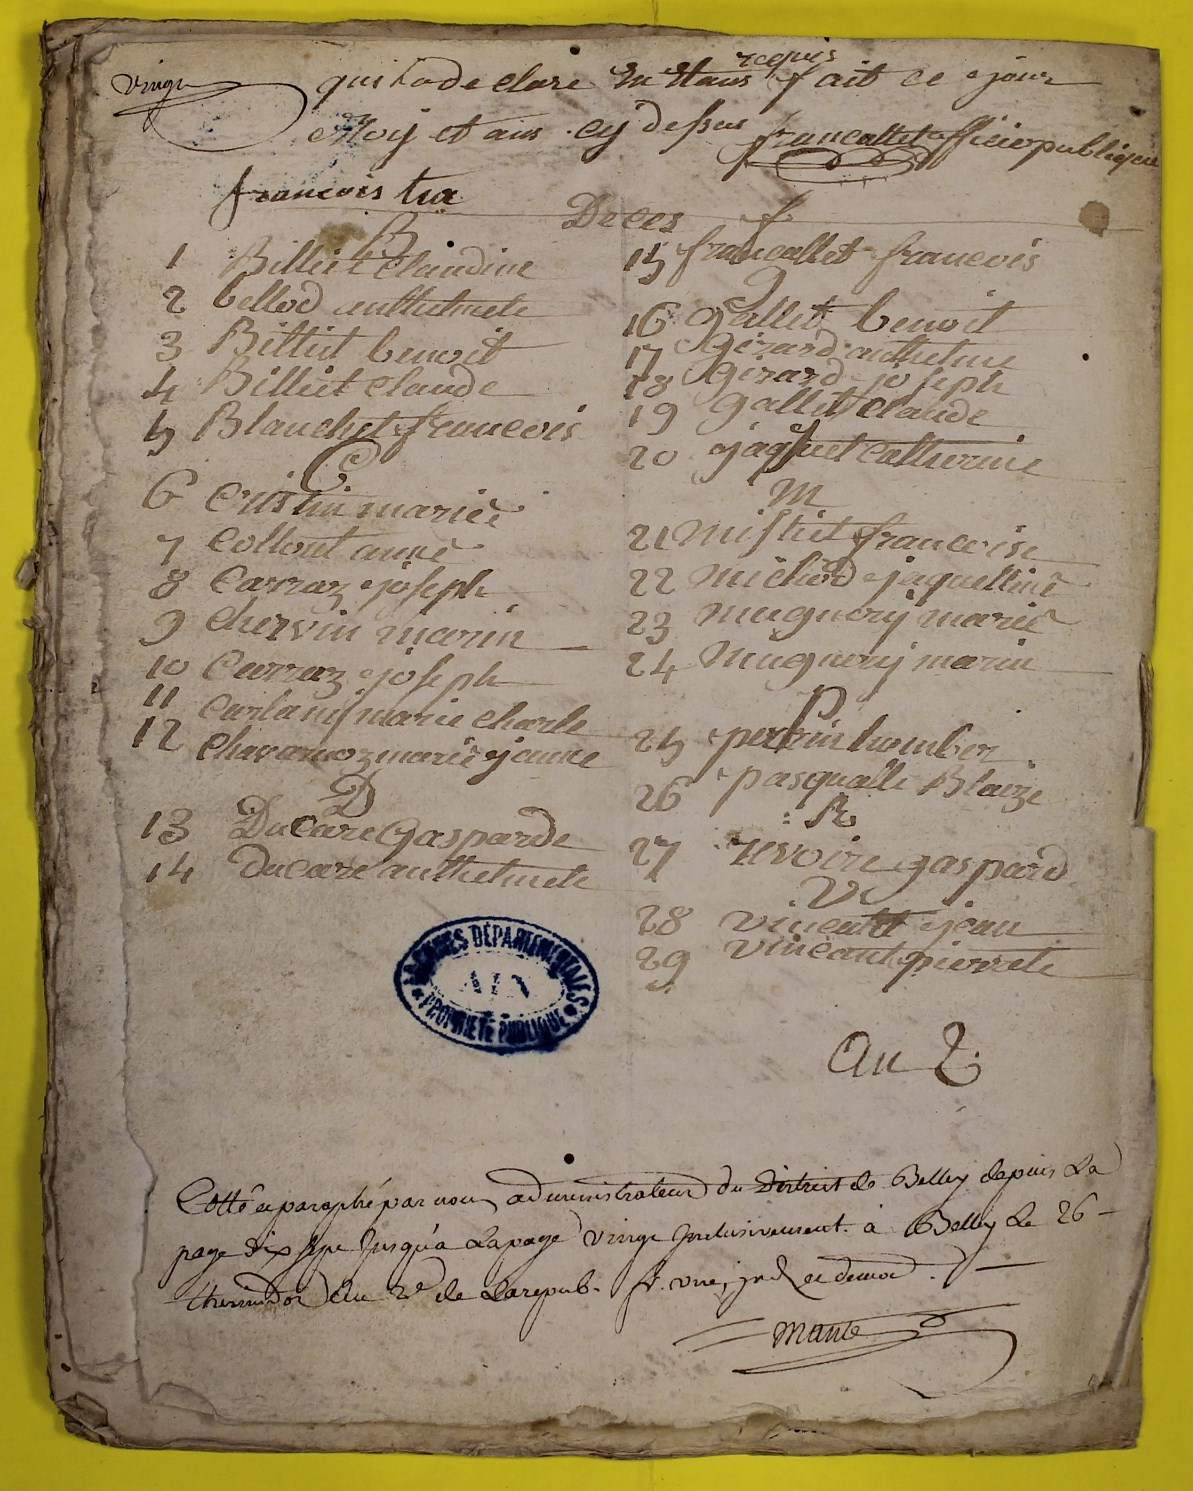 vingt
qui a de clare En Etans requis fait ce jour
Moy et ans cy dessus francallet officier publique
francois tra
Deces
B
1 Billiet Claudine
2 bellod anthelmete
3 Billiet benoit
4 Billiet claude
5 Blanchet francois
C
6 Cristin marie
7 Collout anne
8 Carraz joseph
9 Chervin marin
10 Carraz joseph
11 marie charle
12 Chavanoz marie jeanne
D
13 Ducare Gasparde
14 ducare anthelmete
f
15 francallet francois
g
16 gallet benoit
17 girard anthelme
18 girard joseph
19 gallet claude
20 jaquet Catherine
M
21 francoise
22 michod jaquelline
23 mugnery marie
24 mugnery marin
P
25 perrin humber
26 pasqualle Blaize
R
27 revoire gaspard
V
28 vincent jean
29 vincant pierrete
ARCHIVES DÉPARTEMENTALES
AIN
PROPRIÉTÉ PUBLIQUE
an 2.
Cotté et paraphé par nous administrateur du District de Belley depuis la
page dix sept jusqu'a la page vingt inclusivement. à Belley le 26
thermidor an 2e de la repub. fr. une, ind. et democ.